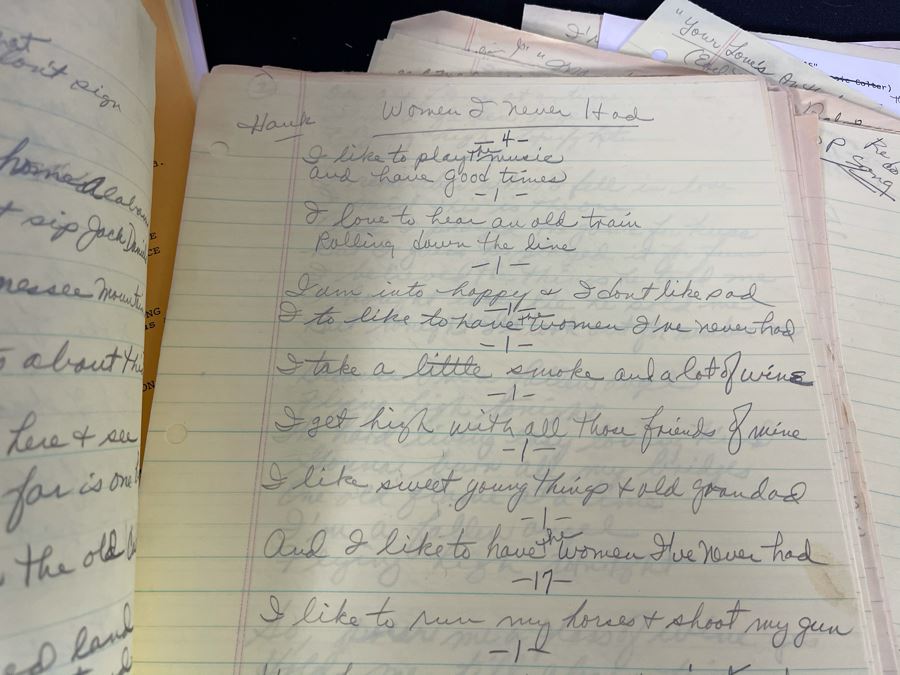 Women I never Had
Hank
-4-
I like to play the music
and have good times
-1-
I love to hear an old train
Rolling down the line
-1-
I am into happy & I dont like sad
-1-
I to like to have the women I've never had
-1-
I take a little smoke and a lot of wine
-1-
I get high with all those friends of mine
-1-
I like sweet young things & old grandad
-1-
And I like to have the women I've never had
-17-
I like to run my horses & shoot my gun
-1-
don't sign
home Alabam
sip Jack Dani
nessee Mountin
about thi
here & see
far is one
the old
land
"Your Love's
Colter)
Redo
Song